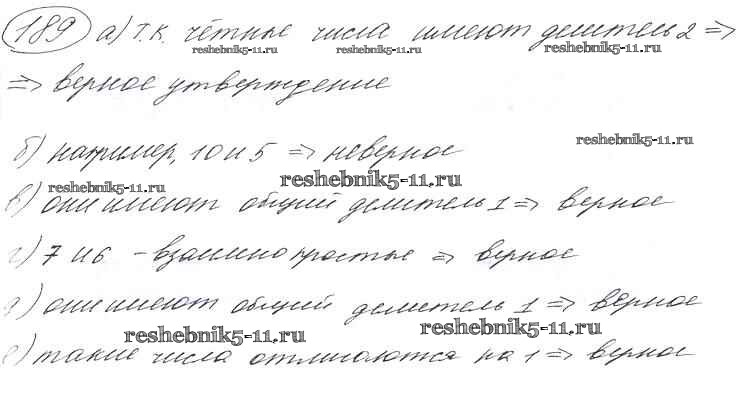 189 а) т.к. чётные числа имеют делитель 2 =>
reshebnik5-11.ru reshebnik5-11.ru reshebnik5-11.ru
=> верное утверждение
reshebnik5-11.ru
б) например, 10 и 5 => неверное
reshebnik5-11.ru reshebnik5-11.ru
в) они имеют общий делитель 1 => верное
г) 7 и 6 - взаимно простые => верное
д) они имеют общий делитель 1 => верное
reshebnik5-11.ru reshebnik5-11.ru
е) такие числа отличаются на 1 => верное